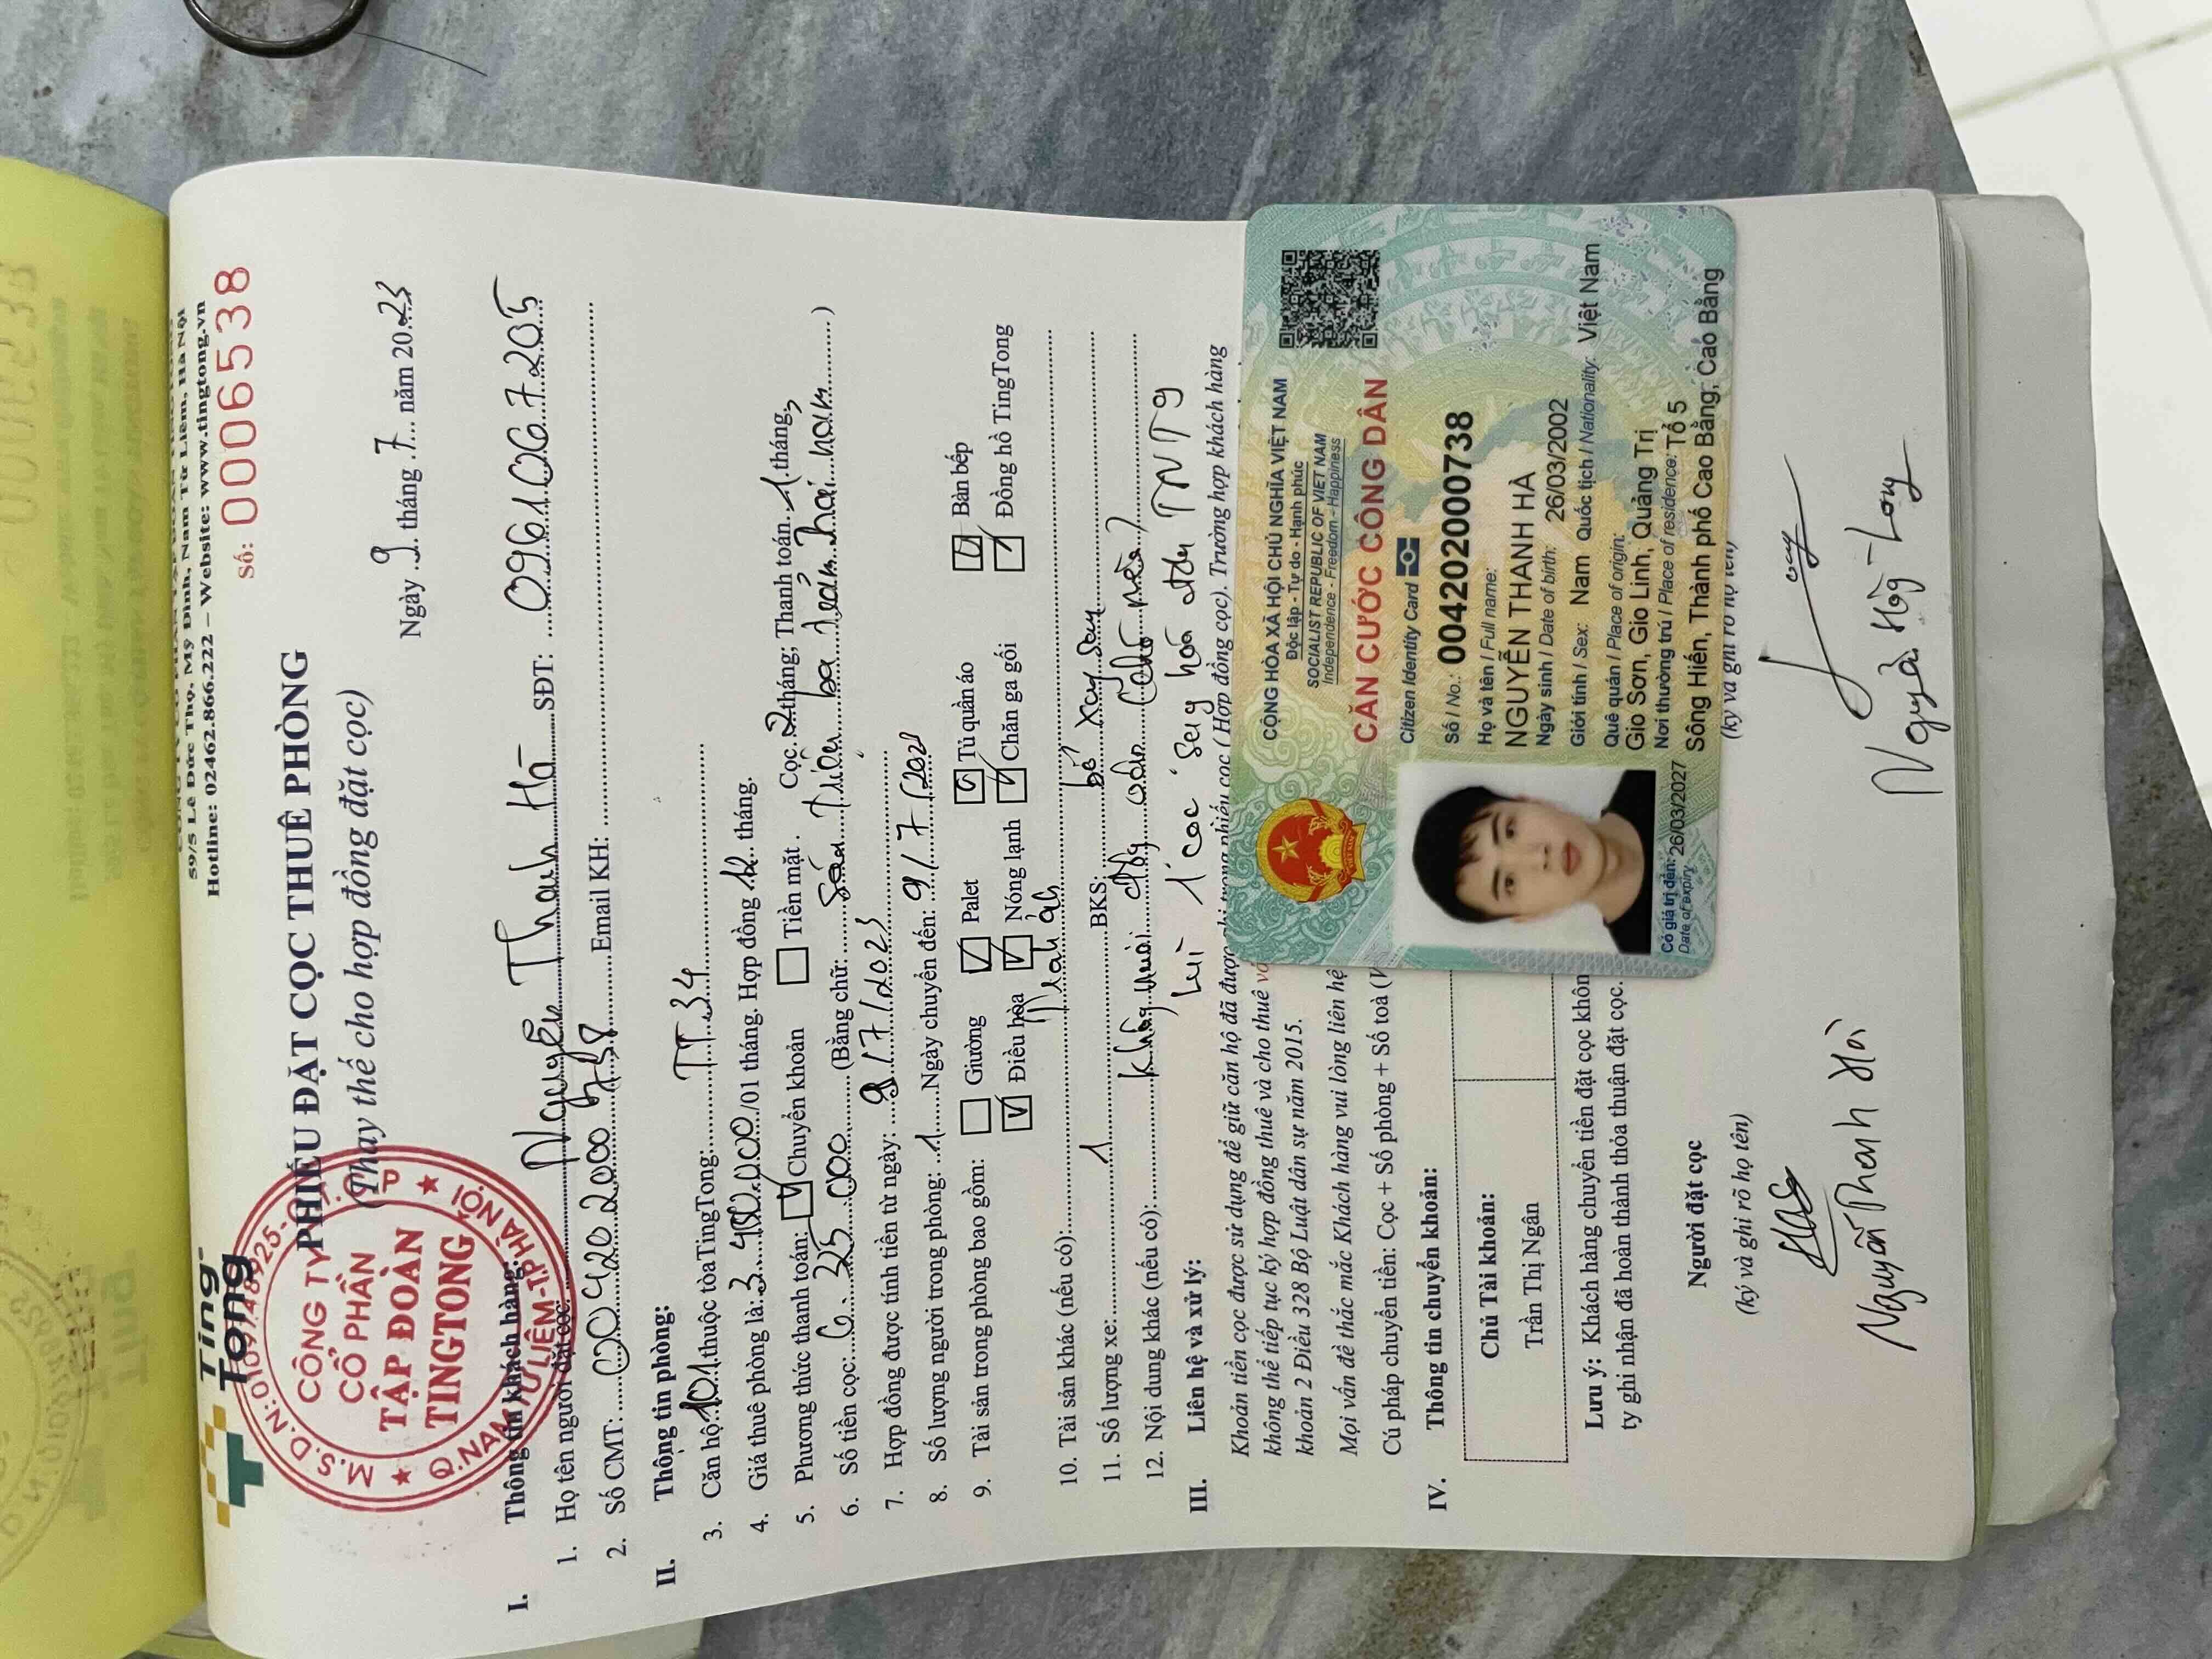 Ting
Tong
59/5 Lê Đức Thọ, Mỹ Đình, Nam Từ Liêm, Hà Nội
Hotline: 02462.866.222 – Website: www.tingtong.vn
Số: 0006538
M.S.D.N:0109748925-C.T.C.P
CÔNG TY
CỔ PHẦN
TẬP ĐOÀN
TINGTONG
Q.NAM TỪ LIÊM-TP.HÀ NỘI
PHIẾU ĐẶT CỌC THUÊ PHÒNG
(Thay thế cho hợp đồng đặt cọc)
Ngày 9 tháng 7 năm 2023
I. Thông tin khách hàng:
1. Họ tên người đặt cọc: Nguyễn Thanh Hà SĐT: 0961067205
2. Số CMT: 004202000738 Email KH:
II. Thông tin phòng:
3. Căn hộ 101 thuộc tòa TingTong: TT34
4. Giá thuê phòng là: 3.​ /01 tháng. Hợp đồng 12 tháng.
5. Phương thức thanh toán: Chuyển khoản Tiền mặt. Cọc 2 tháng; Thanh toán 1 tháng,
6. Số tiền cọc: 6.325.000 (Bằng chữ: Sáu triệu ba trăm hai năm)
7. Hợp đồng được tính tiền từ ngày: 9/7/2023
8. Số lượng người trong phòng: 1 Ngày chuyển đến: 9/7/2023
9. Tài sản trong phòng bao gồm: Giường Palet Tủ quần áo Bàn bếp
Điều hòa Nóng lạnh Chăn ga gối Đồng hồ TingTong
10. Tài sản khác (nếu có):
11. Số lượng xe: 1 BKS:
12. Nội dung khác (nếu có): Không nuôi
1 cọc TNT9
III. Liên hệ và xử lý:
Khoản tiền cọc được sử dụng để giữ căn hộ đã được ghi trong phiếu cọc ( Hợp đồng cọc). Trường hợp khách hàng
không thể tiếp tục ký hợp đồng thuê và cho thuê
khoản 2 Điều 328 Bộ Luật dân sự năm 2015.
Mọi vấn đề thắc mắc Khách hàng vui lòng liên hệ
Cú pháp chuyển tiền: Cọc + Số phòng + Số toà
IV. Thông tin chuyển khoản:
Chủ Tài khoản:
Trần Thị Ngân
Lưu ý: Khách hàng chuyển tiền đặt cọc
ty ghi nhận đã hoàn thành thỏa thuận đặt cọc.
Người đặt cọc
(ký và ghi rõ họ tên)
Nguyễn Thanh Hà
(ký và ghi rõ họ tên)
Nguyễn Hoàng Long
CỘNG HÒA XÃ HỘI CHỦ NGHĨA VIỆT NAM
Độc lập - Tự do - Hạnh phúc
SOCIALIST REPUBLIC OF VIET NAM
Independence - Freedom - Happiness
CĂN CƯỚC CÔNG DÂN
Citizen Identity Card
Số / No.: 004202000738
Họ và tên / Full name:
NGUYỄN THANH HÀ
Ngày sinh / Date of birth: 26/03/2002
Giới tính / Sex: Nam Quốc tịch / Nationality: Việt Nam
Quê quán / Place of origin:
Gio Sơn, Gio Linh, Quảng Trị
Nơi thường trú / Place of residence: Tổ 5
Sông Hiến, Thành phố Cao Bằng, Cao Bằng
Có giá trị đến: 26/03/2027
Date of expiry